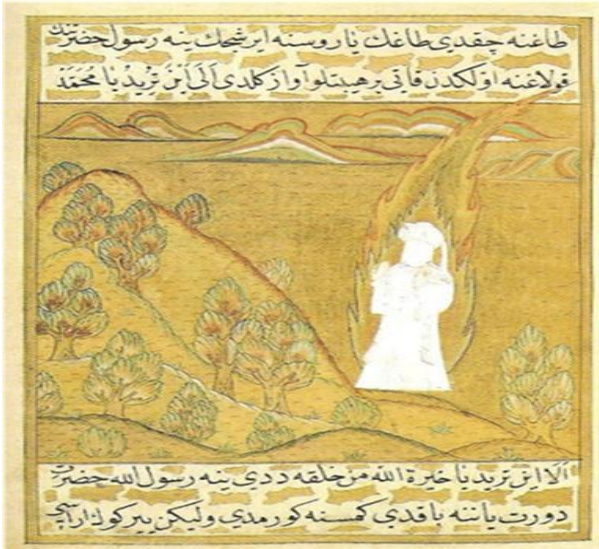 طاغنه چقدی طاغك یاروسنه ایرشجك ینه رسول حضرتنك
قولاغنه اولكدن قاتی برهیبتلو آواز كلدی اَلَی اَیْنَ تُرِیدُ یَا مُحَمَّدْ
اَلَا این ترید یا خیرة الله من خلقه ددی ینه رسول الله حضرت
دورت یاننه باقدی كمسنه كورمدی ولیكن ییر كوك اراسی